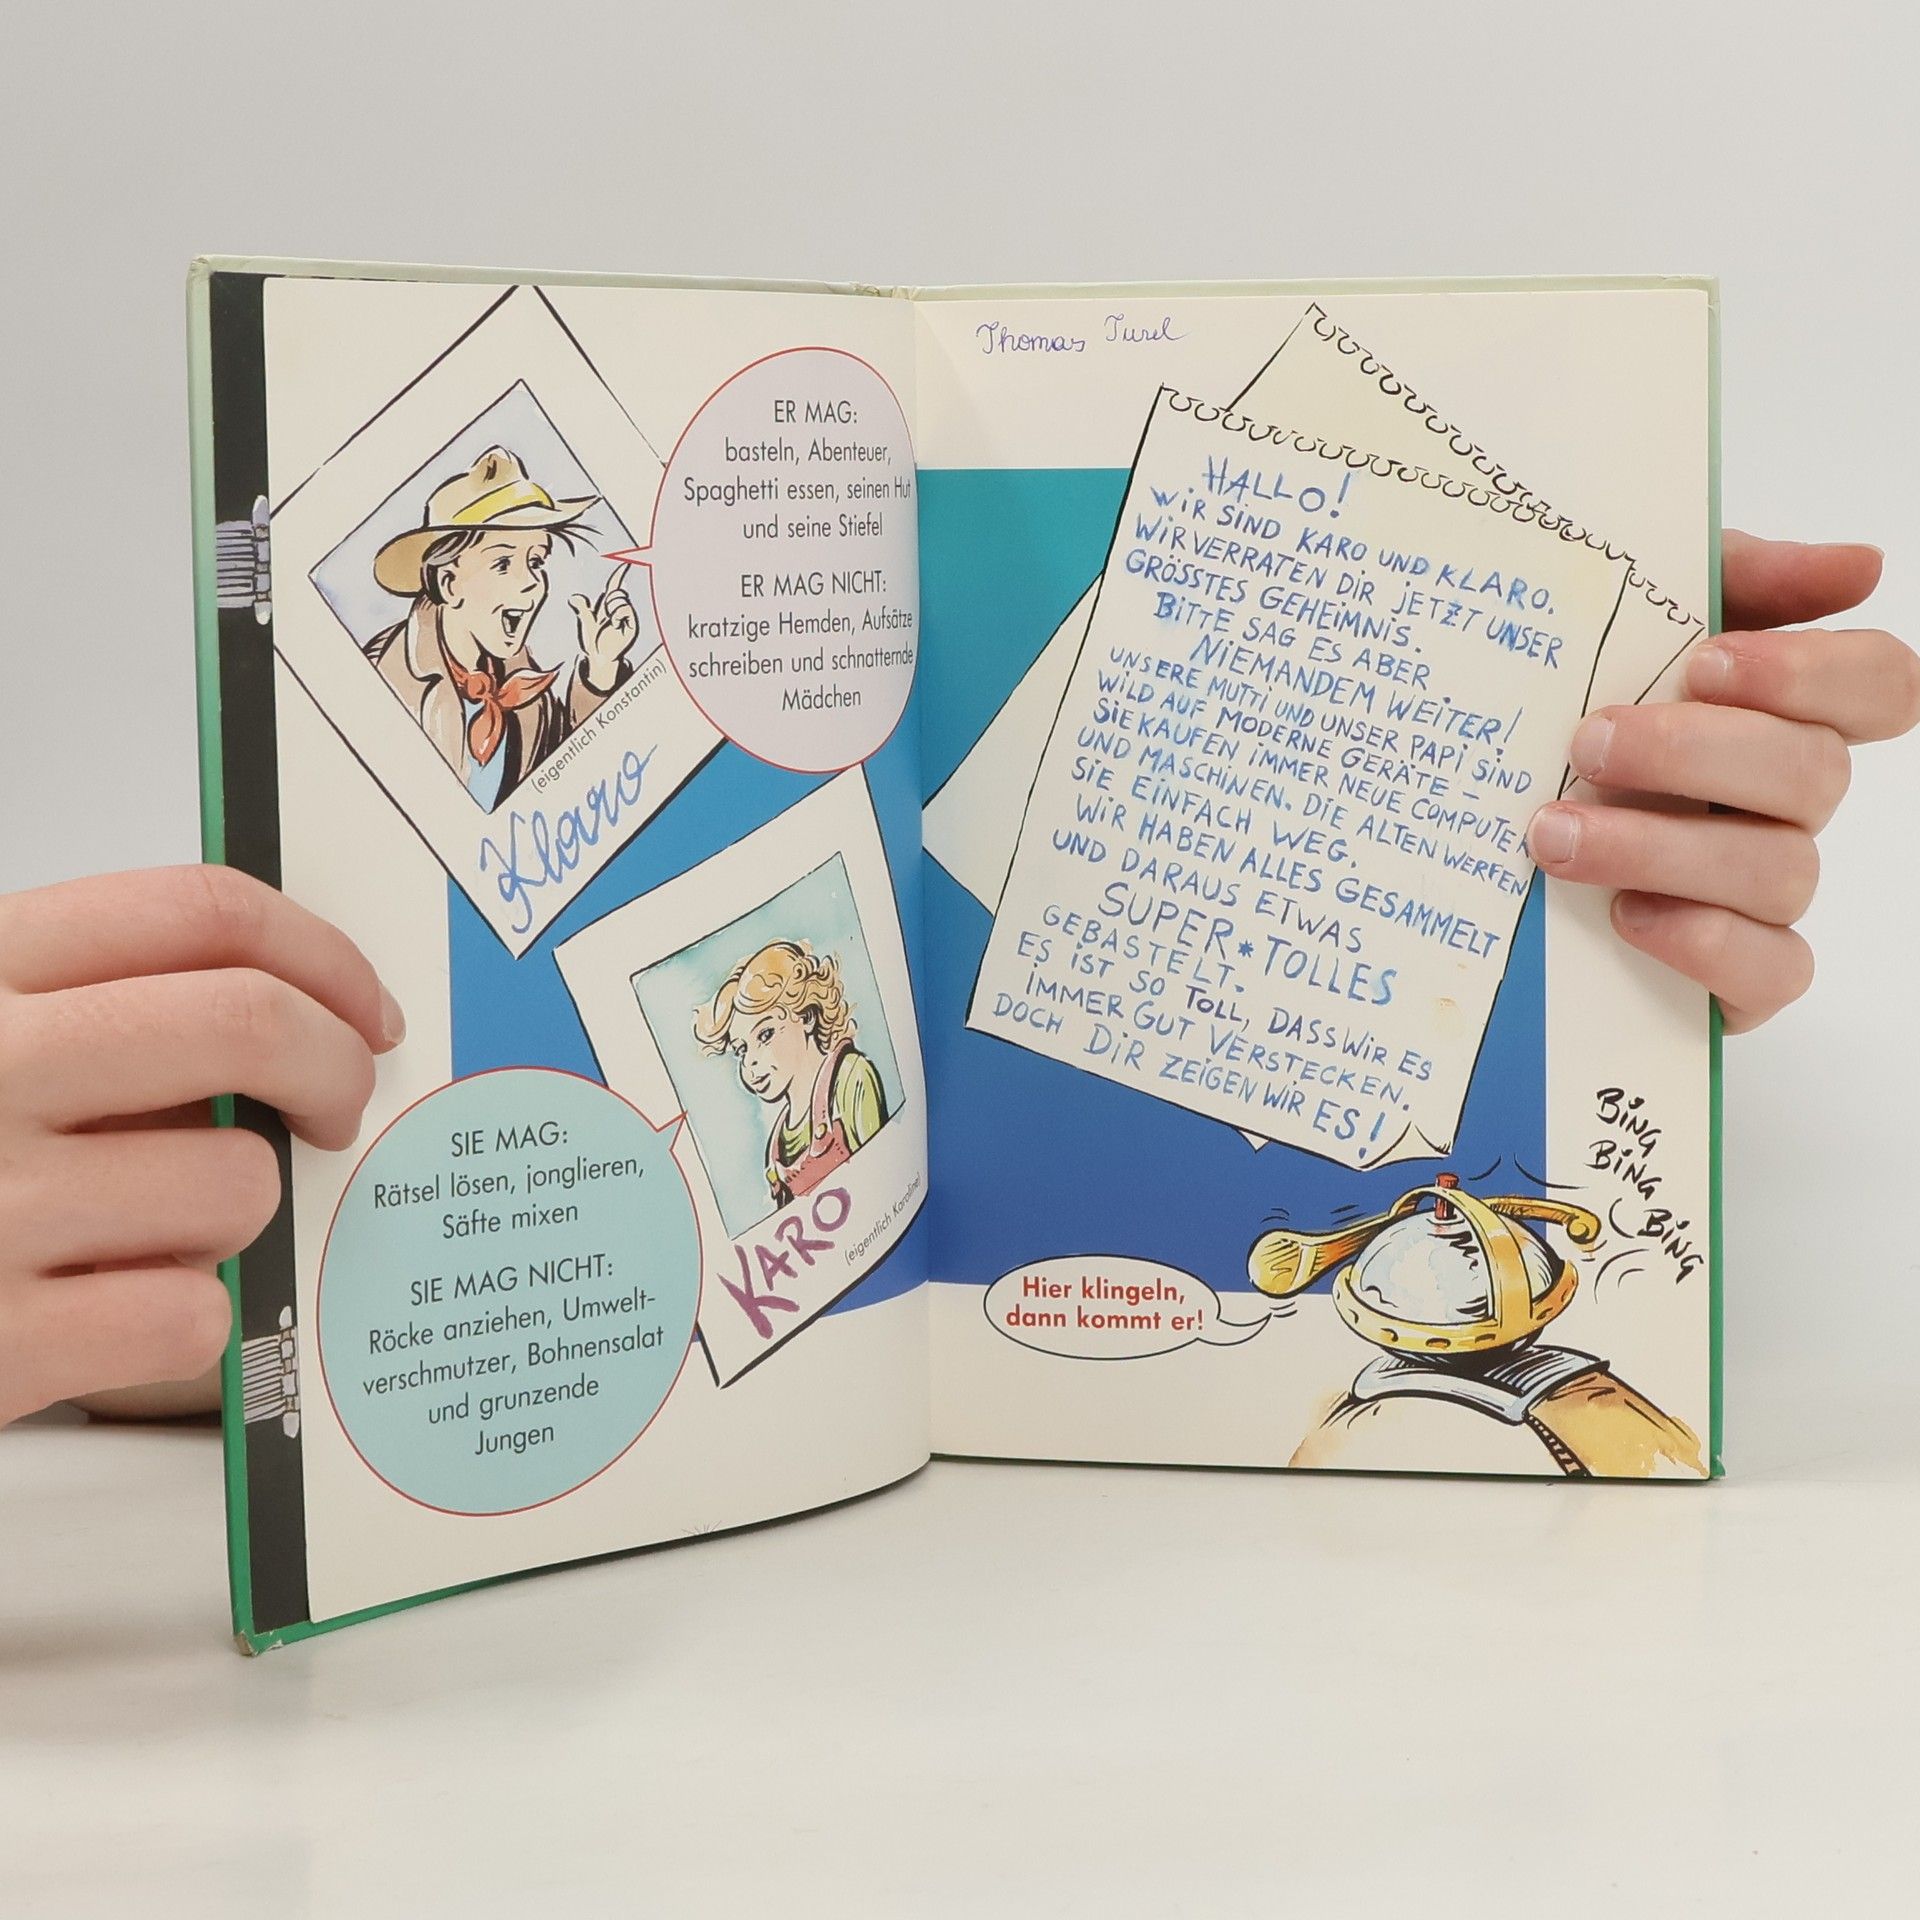 ER MAG:
basteln, Abenteuer,
Spaghetti essen, seinen Hut
und seine Stiefel
ER MAG NICHT:
kratzige Hemden, Aufsätze
schreiben und schnatternde
Mädchen
(eigentlich Konstantin)
Klaro
SIE MAG:
Rätsel lösen, jonglieren,
Säfte mixen
SIE MAG NICHT:
Röcke anziehen, Umwelt-
verschmutzer, Bohnensalat
und grunzende
Jungen
KARO
(eigentlich Karoline)
Thomas Turel
HALLO!
WIR SIND KARO UND KLARO.
WIR VERRATEN DIR JETZT UNSER
GRÖSSTES GEHEIMNIS.
BITTE SAG ES ABER
NIEMANDEM WEITER!
UNSERE MUTTI UND UNSER PAPI SIND
WILD AUF MODERNE GERÄTE –
SIE KAUFEN IMMER NEUE COMPUTER
UND MASCHINEN. DIE ALTEN WERFEN
SIE EINFACH WEG.
WIR HABEN ALLES GESAMMELT
UND DARAUS ETWAS
SUPER*TOLLES
GEBASTELT.
ES IST SO TOLL, DASS WIR ES
IMMER GUT VERSTECKEN.
DOCH DIR ZEIGEN WIR ES!
BING
BING
BING
Hier klingeln,
dann kommt er!